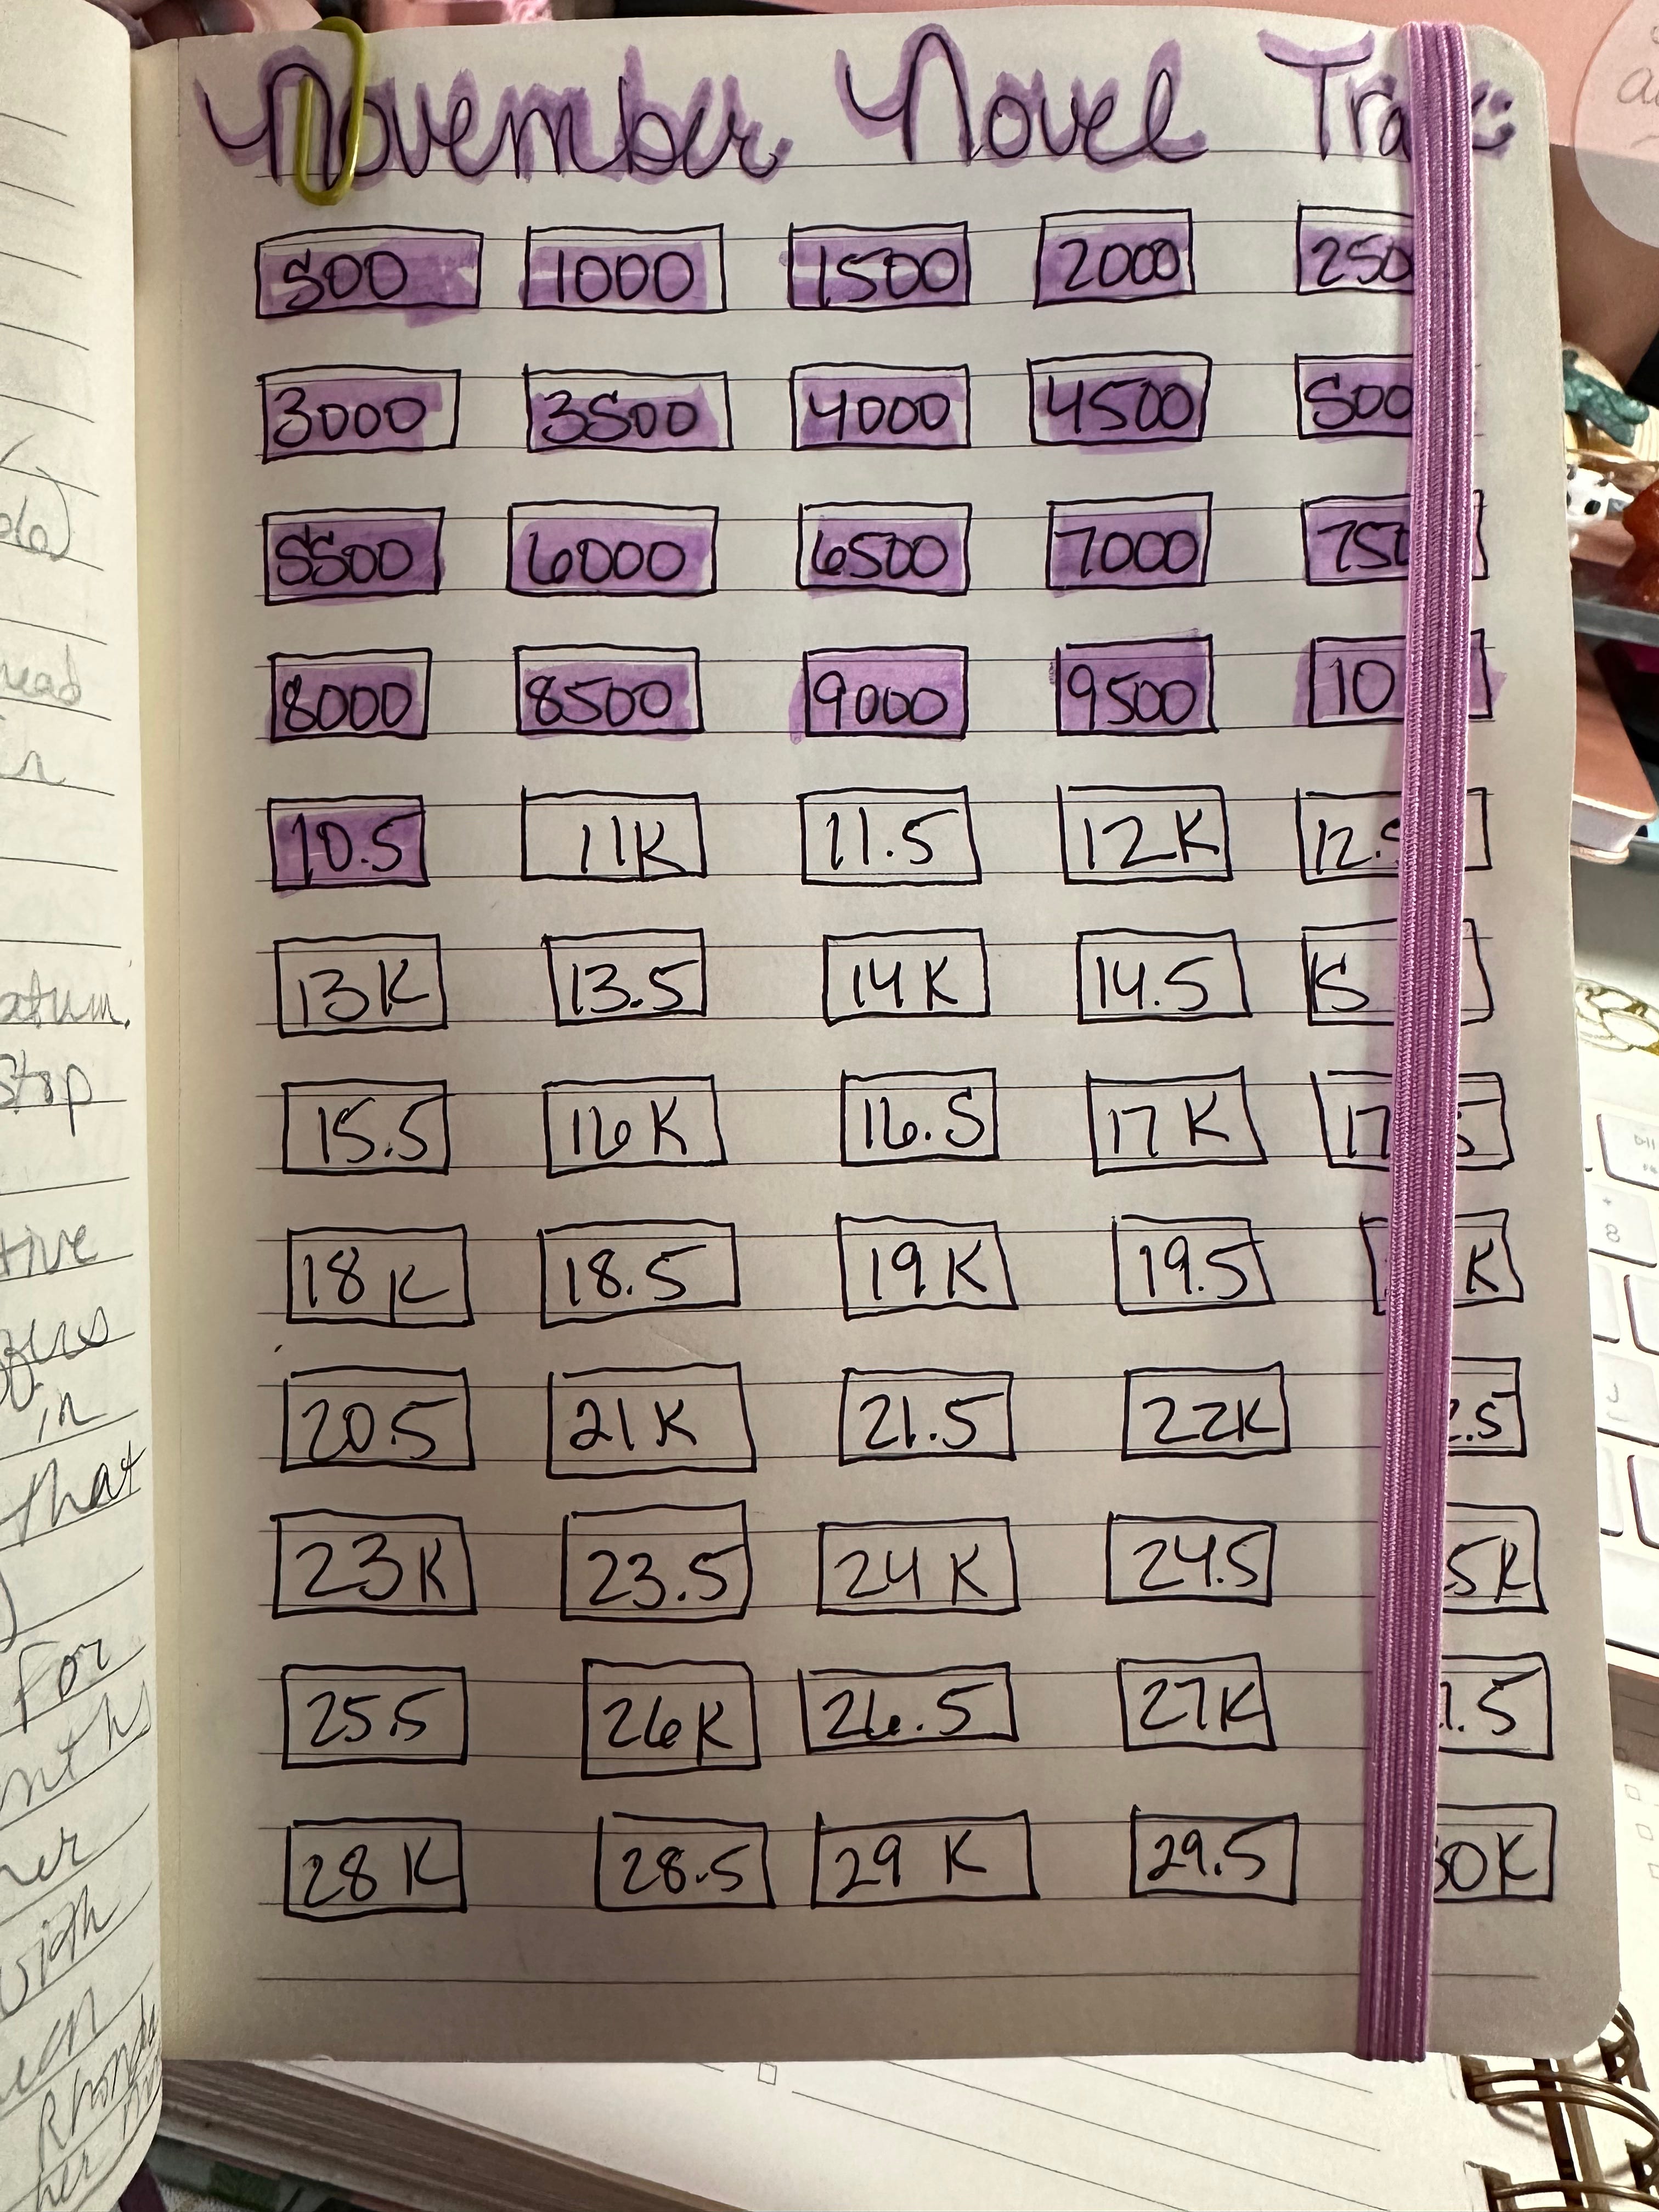 November Novel Trac
500 1000 1500 2000 250
3000 3500 4000 4500 500
5500 6000 6500 7000 750
8000 8500 9000 9500 10
10.5 11K 11.5 12K 12.5
13K 13.5 14K 14.5 15
15.5 16K 16.5 17K 17 5
18K 18.5 19K 19.5 K
20.5 21K 21.5 22K 2.5
23K 23.5 24K 24.5 5K
25.5 26K 26.5 27K 7.5
28K 28.5 29K 29.5 30K
read
in
atum.
Stop
tive
in
that
For
nths
her
with
Rhonda
her